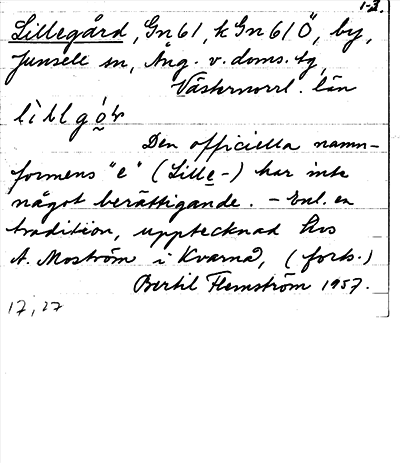 1-2.
Lillegård, Gn 61, k Gn 61 Ö, by,
Junsele sn, Ång. v. doms. tg,
Västernorrl. län
Den officiella namn-
formens "e" (Lille-) har inte
något berättigande. - Enl. en
tradition, upptecknad hos
A. Moström i Kvarnå, (forts.)
Bertil Flemström 1957.
17, 27